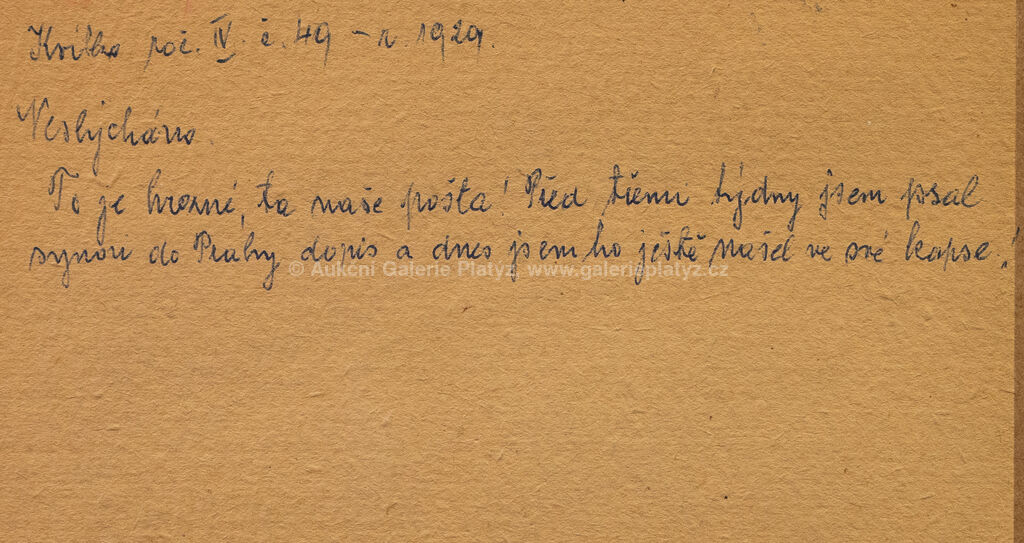 Kvítko roč. IV. č. 49 – r. 1929.
Neslýcháno.
To je hrozné, ta naše pošta! Před třemi týdny jsem psal
synovi do Prahy dopis a dnes jsem ho ještě našel ve své kapse!
© Aukcni Galerie Platyz, www.galerieplatyz.cz